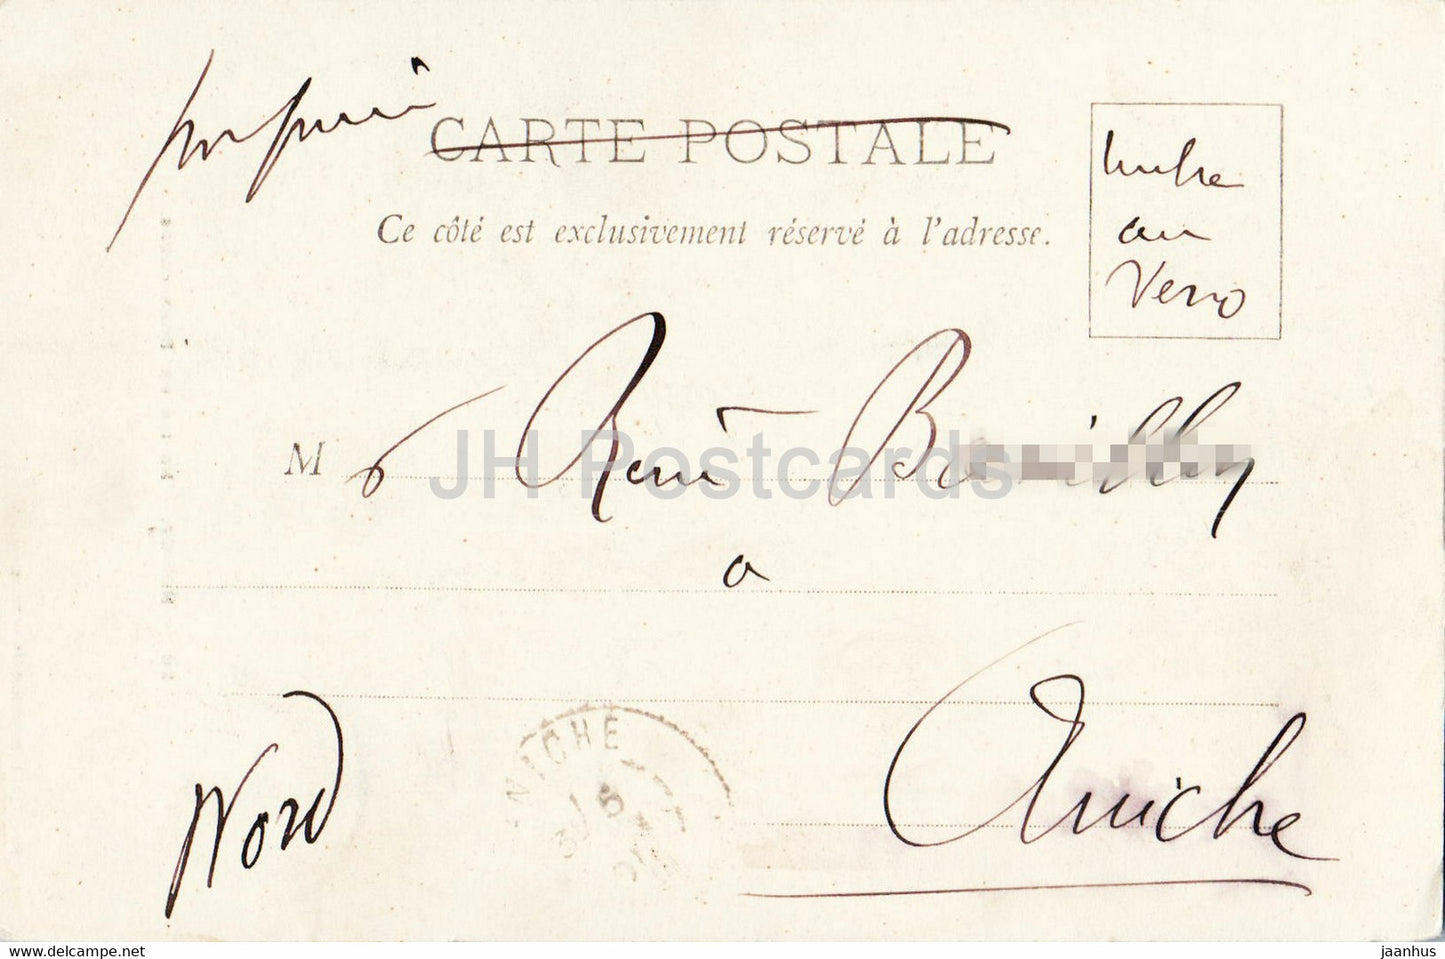 Imprimé
CARTE POSTALE
Ce côté est exclusivement réservé à l'adresse.
timbre
au
Verso
M r René
a
Aniche
Nord
ANICHE
JH Postcards
www.delcampe.net
jaanhus